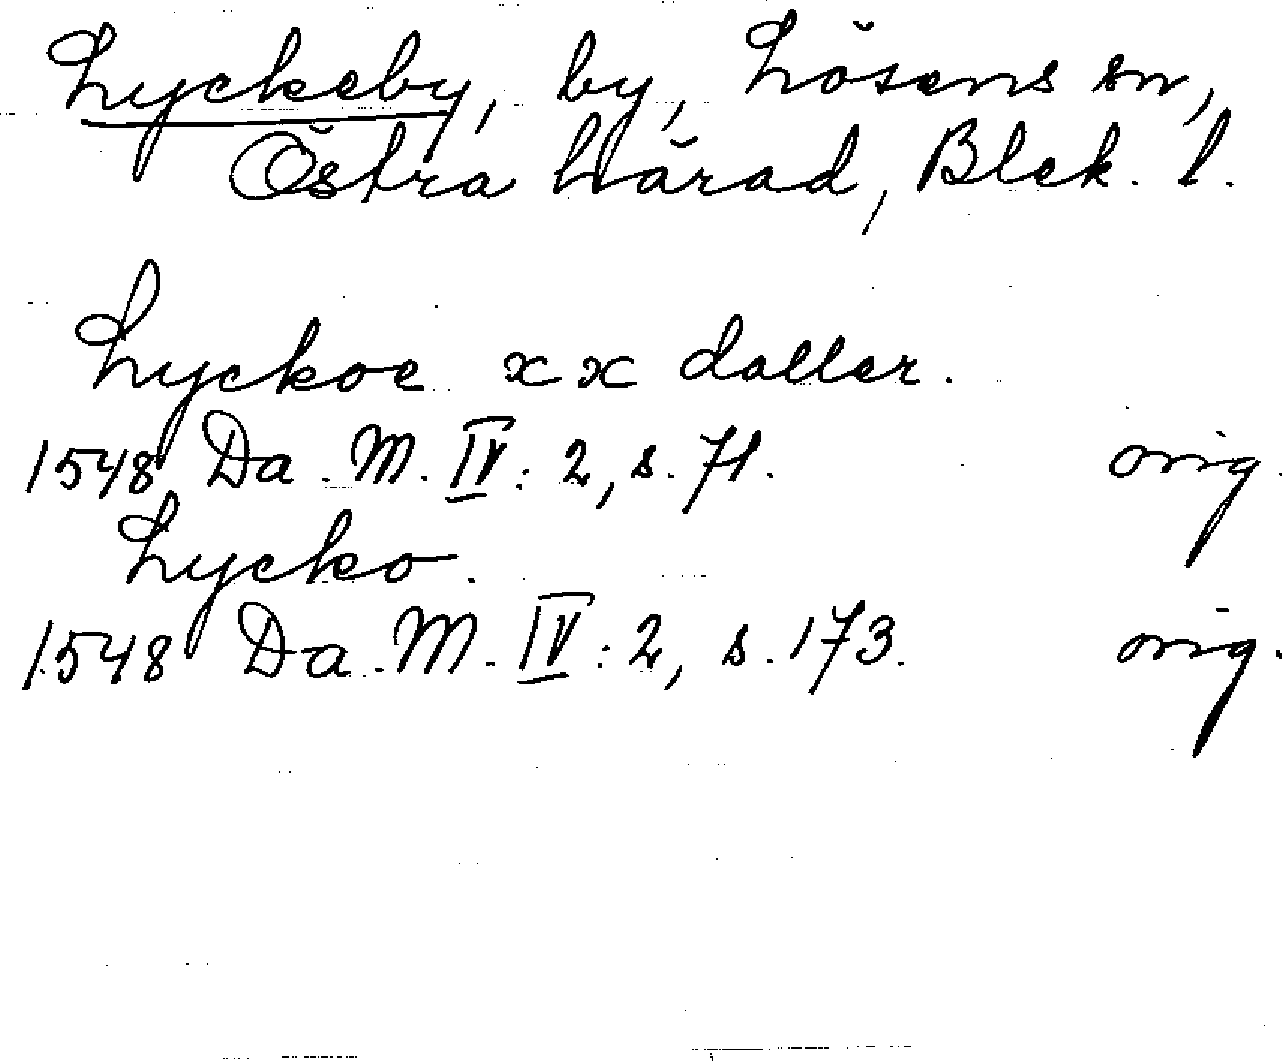 Lyckeby, by, Lösens sn,
Östra härad, Blek. l.
Lyckoe xx daller.
1548 Da. M. IV: 2, s. 71. orig.
Lycko.
1548 Da. M. IV: 2, s. 173. orig.